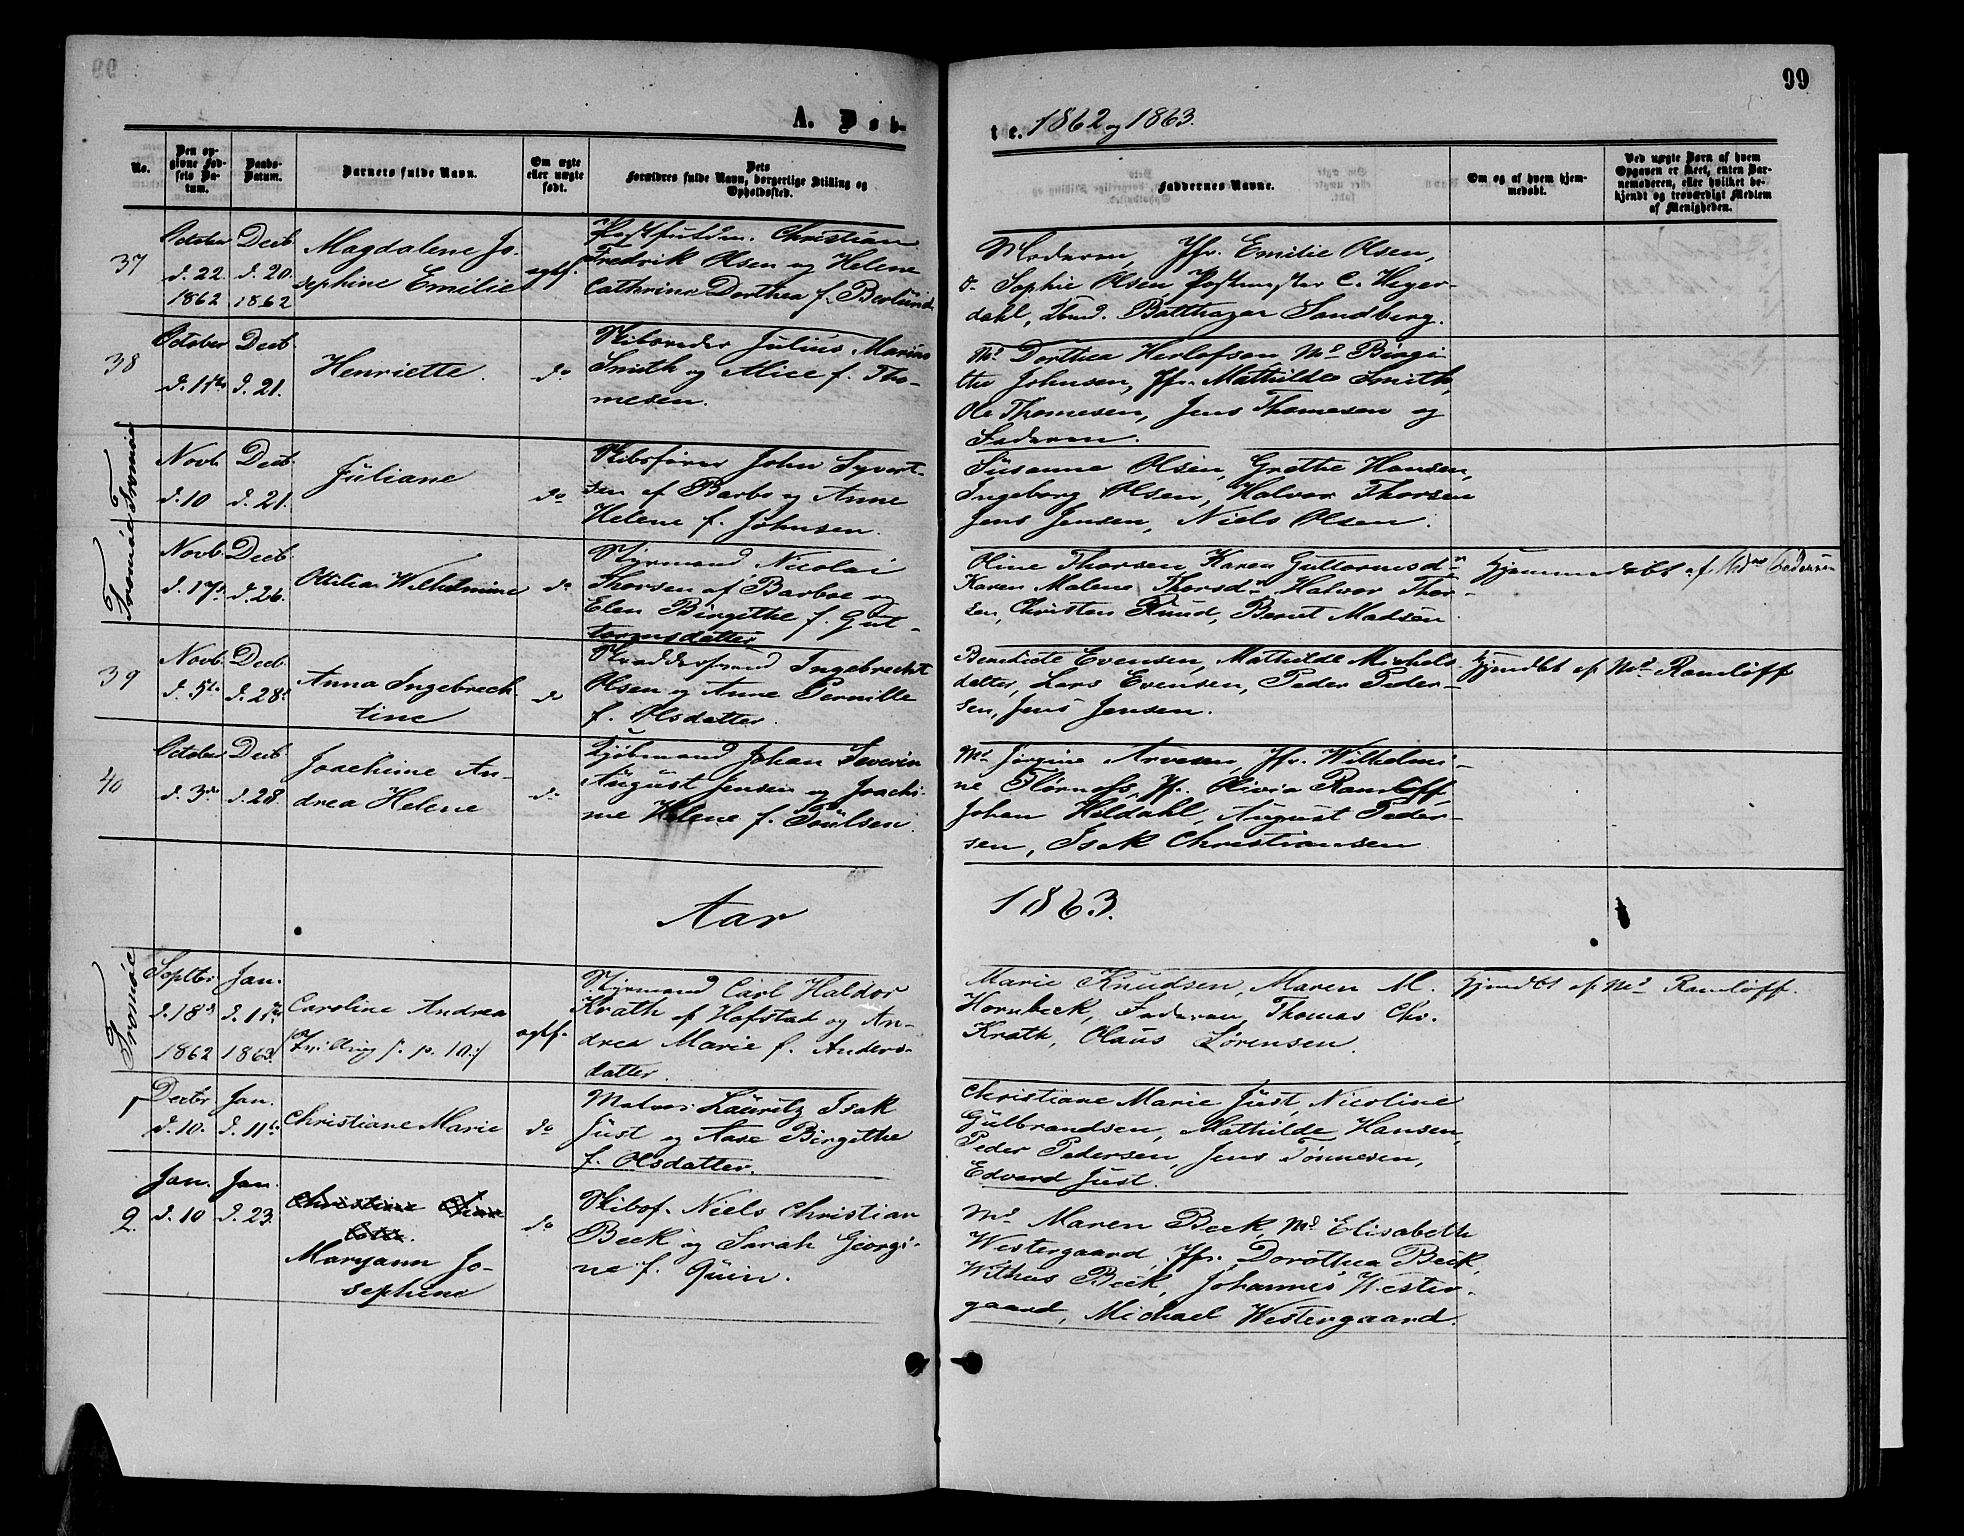 99
A. Døb-
te. 1862 og 1863.
No.
Den opgivne Fødsels Datum.
Daabs-Datum.
Barnets fulde Navn.
Om ægte eller uægte født.
Dets Forældres fulde Navn, borgerlige Stilling og Opholdssted.
Faddernes Navne.
Om og af hvem hjemmedøbt.
Ved uægte Børn af hvem Opgaven er skeet, enten Barnemoderen, eller hvilket bekjendt og troværdigt Medlem af Menigheden.
37
October d. 22. 1862
Decb. d. 20. 1862
Magdalene Jo-
sephine Emilie
egtf.
Christian
Fredrik Olsen og Helene
Cathrine Dorthea f. Berlund.
Moderen, Jfr. Emilie Olsen,
do. Sophie Olsen Postmester C. Heyer-
dahl, Balthazar Sandberg.
38
October d. 15de
Decb. d. 21.
Henriette.
do
Skibsreder Julius Marius
Smith og Alice f. Tho-
mesen.
Md. Dorthea Herlofsen Md. Birgi-
the Johnsen, Jfr. Mathilde Smith,
Ole Thomesen, Jens Thomesen og
Faderen.
Tromøe
Novb. d. 10
Decb. d. 21.
Juliane
do
Skibsfører John Syvert-
sen af Barbo og Anne
Helene f. Johnsen.
Susanne Olsen, Grethe Hansen,
Ingeborg Olsen, Halvor Thorsen
Jens Jensen, Niels Olsen.
Tromøe
Novb. d. 17.
Decb. d. 26.
Ottilia Wilhelmine
do
Styrmand Nicolai
Thorsen af Barboe og
Elen Birgithe f. Gut-
tormsdatter
Oline Thorsen Karen Guttormsd.
Karen Malene Thorsd. Halvor Thor-
sen, Christen Knud, Bernt Madsen
Hjemmedøbt af Mdme Pedersen
39
Novb. d. 5te
Decb. d. 28.
Anna Ingebrech-
tine
do
Skræddersvend Ingebrecht
Olsen og Anne Pernille
f. Olsdatter.
Benedicte Evensen, Mathilde Michels-
datter, Lars Evensen, Peder Peder-
sen, Jens Jensen.
Hjemdbt af Md. Ramløff
40
October d. 3die
Decb. d. 28.
Joachime An-
drea Helene
do
Kjøbmand Johan Severin
August Jensen og Joachi-
me Helene f. Poulsen.
Md. Jørgine Arvesen, Jfr. Wilhelmi-
ne Flørnæss, Jf. Olivia Ramløff,
Johan Hildahl, August Peder-
sen, Isak Christiansen
Aar 1863.
Tromøe
Septbr d. 18d 1862
Jan. d. 1ste 1863.
Caroline Andrea
(Tvilling f. p. 10.)
egtf.
Styrmand Carl Haldor
Krath af Hofstad og An-
drea Marie f. Anders-
datter.
Marie Knudsen, Maren M.
Hornbeck, Faderen, Thomas Chr.
Krath, Olaus Sørensen.
Hjemdbt af Md. Ramløff.
1
Decbr d. 10.
Jan. d. 11te
Christiane Marie
do
Matros Lauritz Isak
Just og Aase Birgithe
f. Olsdatter.
Christiane Marie Just, Nicoline
Gulbrandsen, Mathilde Hansen,
Peder Pedersen, Jens Tønnesen,
Edvard Just.
2.
Jan. d. 10
Jan. d. 23.
Maryann Jo-
sephine
do
Skibsf. Niels Christian
Beck og Sarah Georgi-
ne f. Quin.
Md. Maren Beck, Md. Elisabeth
Westergaard, Jfr. Dorothea Beck,
Wilhus Beck, Johannes Wester-
gaard, Michael Westergaard.